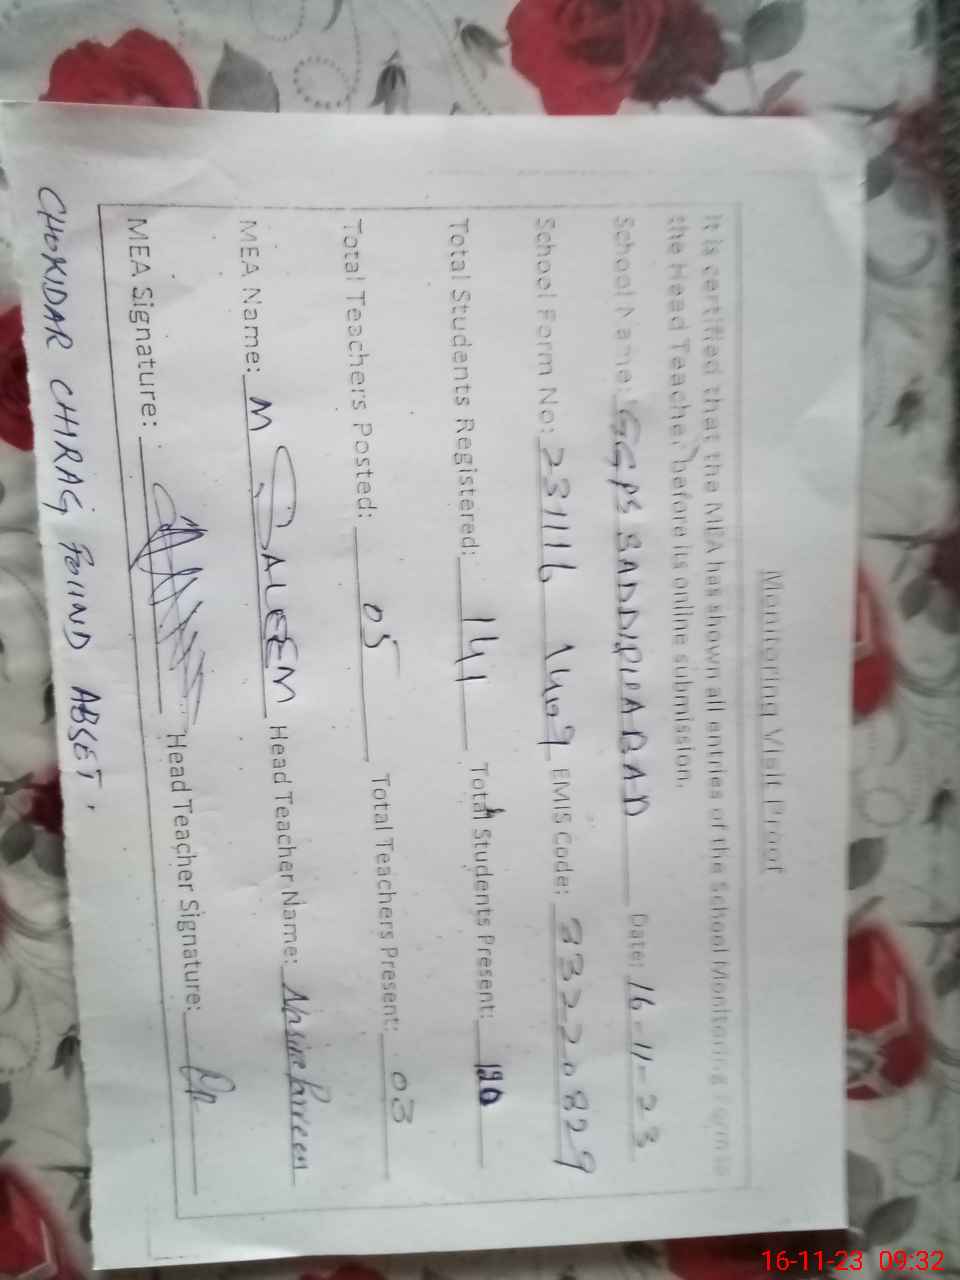 Monitoring Visit Proof
It is certified that the MEA has shown all entries of the School Monitoring Form to
the Head Teacher before its online submission.
School Name: GGPS SADDIQUABAD Date: 16-11-23
School Form No: 231116 1409 EMIS Code: 33220829
Total Students Registered: 141 Total Students Present: 120
Total Teachers Posted: 05 Total Teachers Present: 03
MEA Name: M SALEEM Head Teacher Name: Parveen
MEA Signature: Head Teacher Signature:
CHOKIDAR CHIRAG FOUND ABSET.
16-11-23 09:32